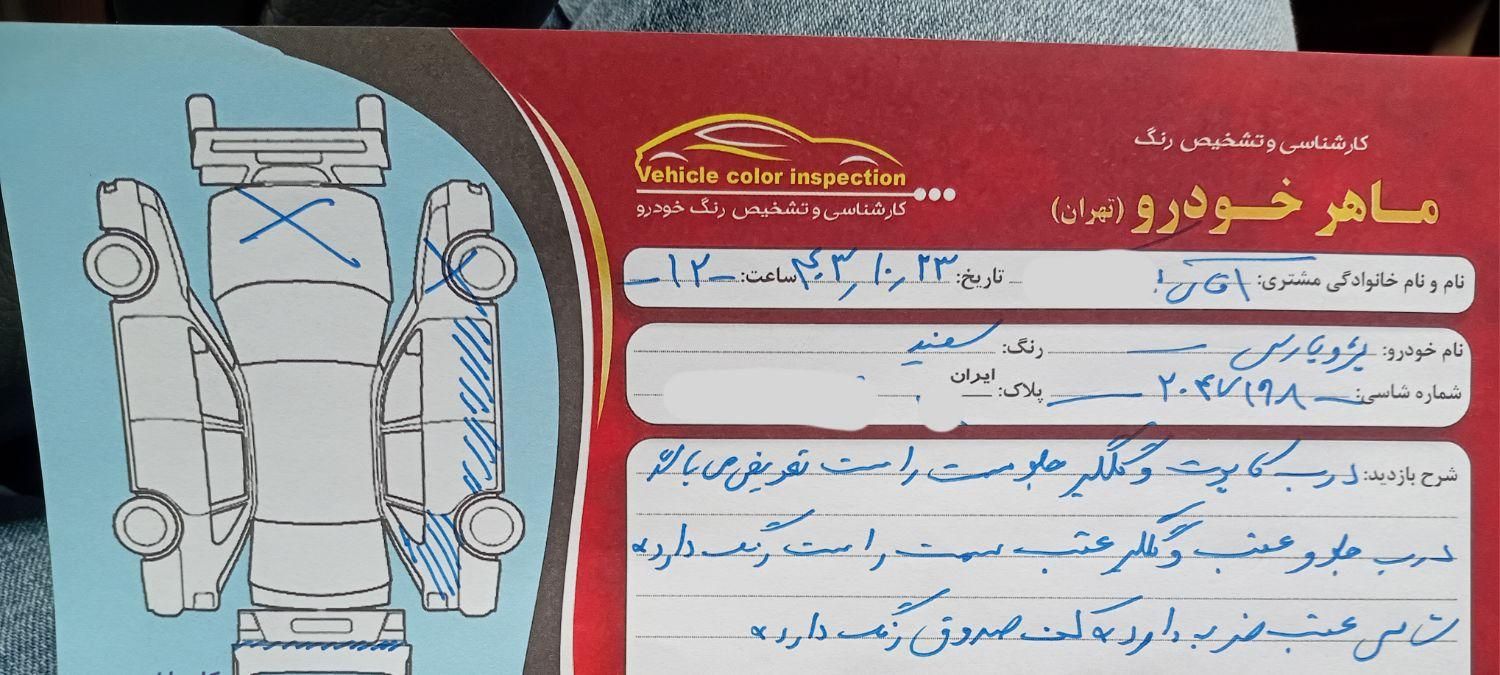 کارشناسی و تشخیص رنگ
ماهر خودرو (تهران)
Vehicle color inspection
کارشناسی و تشخیص رنگ خودرو
نام و نام خانوادگی مشتری: آقای تاریخ: ۴۰۳٫۱۰٫۲۳ ساعت: ۱۲
نام خودرو: پژو پارس رنگ: سفید
شماره شاسی: ۲۰۴۷۱۹۸ پلاک: ایران
شرح بازدید: درب کاپوت و گلگیر جلو سمت راست تعویض می باشد
درب جلو و عقب و گلگیر عقب سمت راست رنگ دارد
شاسی عقب ضربه دارد کف صندوق رنگ دارد